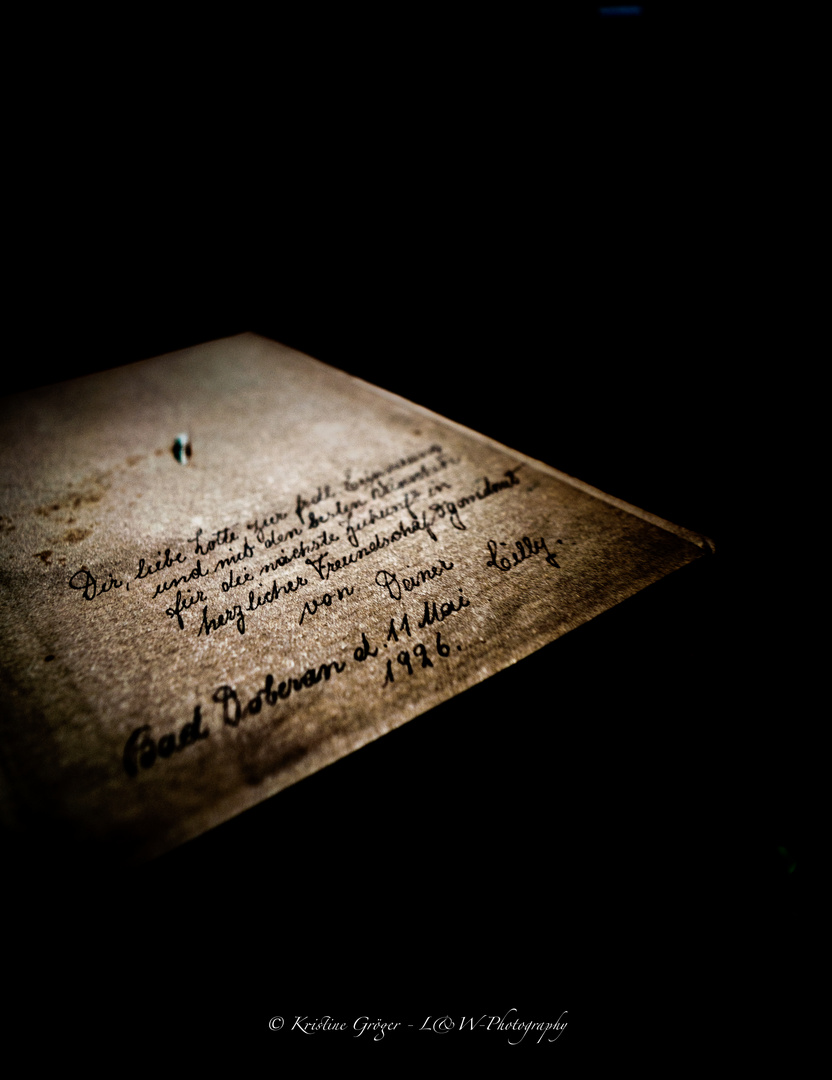 Dir, liebe Lotte zur frdl. Erinnerung
und mit den besten Wünschen
für die nächste Zukunft in
herzlicher Freundschaft gewidmet
von Deiner Cilly.
Bad Doberan d. 11 Mai
1926.
© Kristine Gröger - L&W-Photography